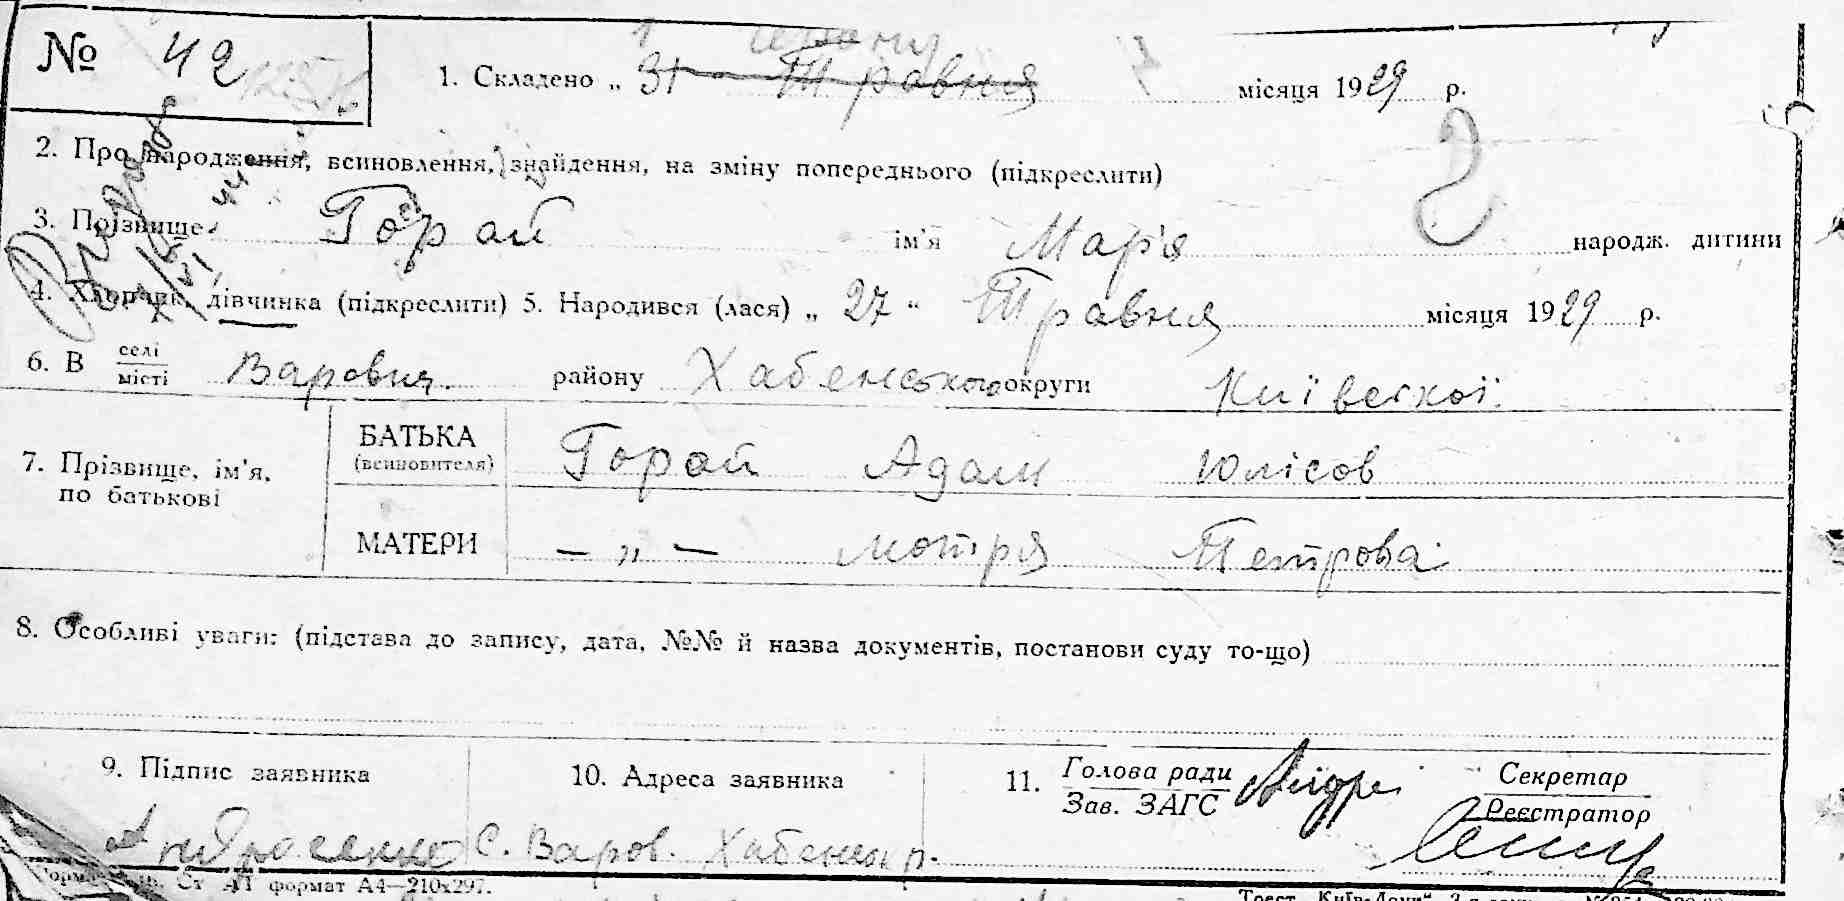 № 42
1. Складено „ 31 - Травня місяця 1929 р.
2. Про народження, всиновлення, знайдення, на зміну попереднього (підкреслити)
3. Прізвище Горай ім'я Мар'я народж. дитини
4. Хлопчик, дівчинка (підкреслити) 5. Народився (лася) „ 27 " Травня місяця 1929 р.
6. В селі
місті Варовичи району Хабенського округи Київскої
7. Прізвище, ім'я, по батькові
БАТЬКА (всиновителя) Горай Адам Юлісов
МАТЕРИ — „ — Мотря Петрова
8. Особливі уваги: (підстава до запису, дата, №№ й назва документів, постанови суду то-що)
9. Підпис заявника 10. Адреса заявника 11. Голова ради
Зав. ЗАГС Секретар
Реєстратор
с. Варов. Хабенськ р.
Ст. А4 формат А4—210x297.
Трест „Київ-Друк"